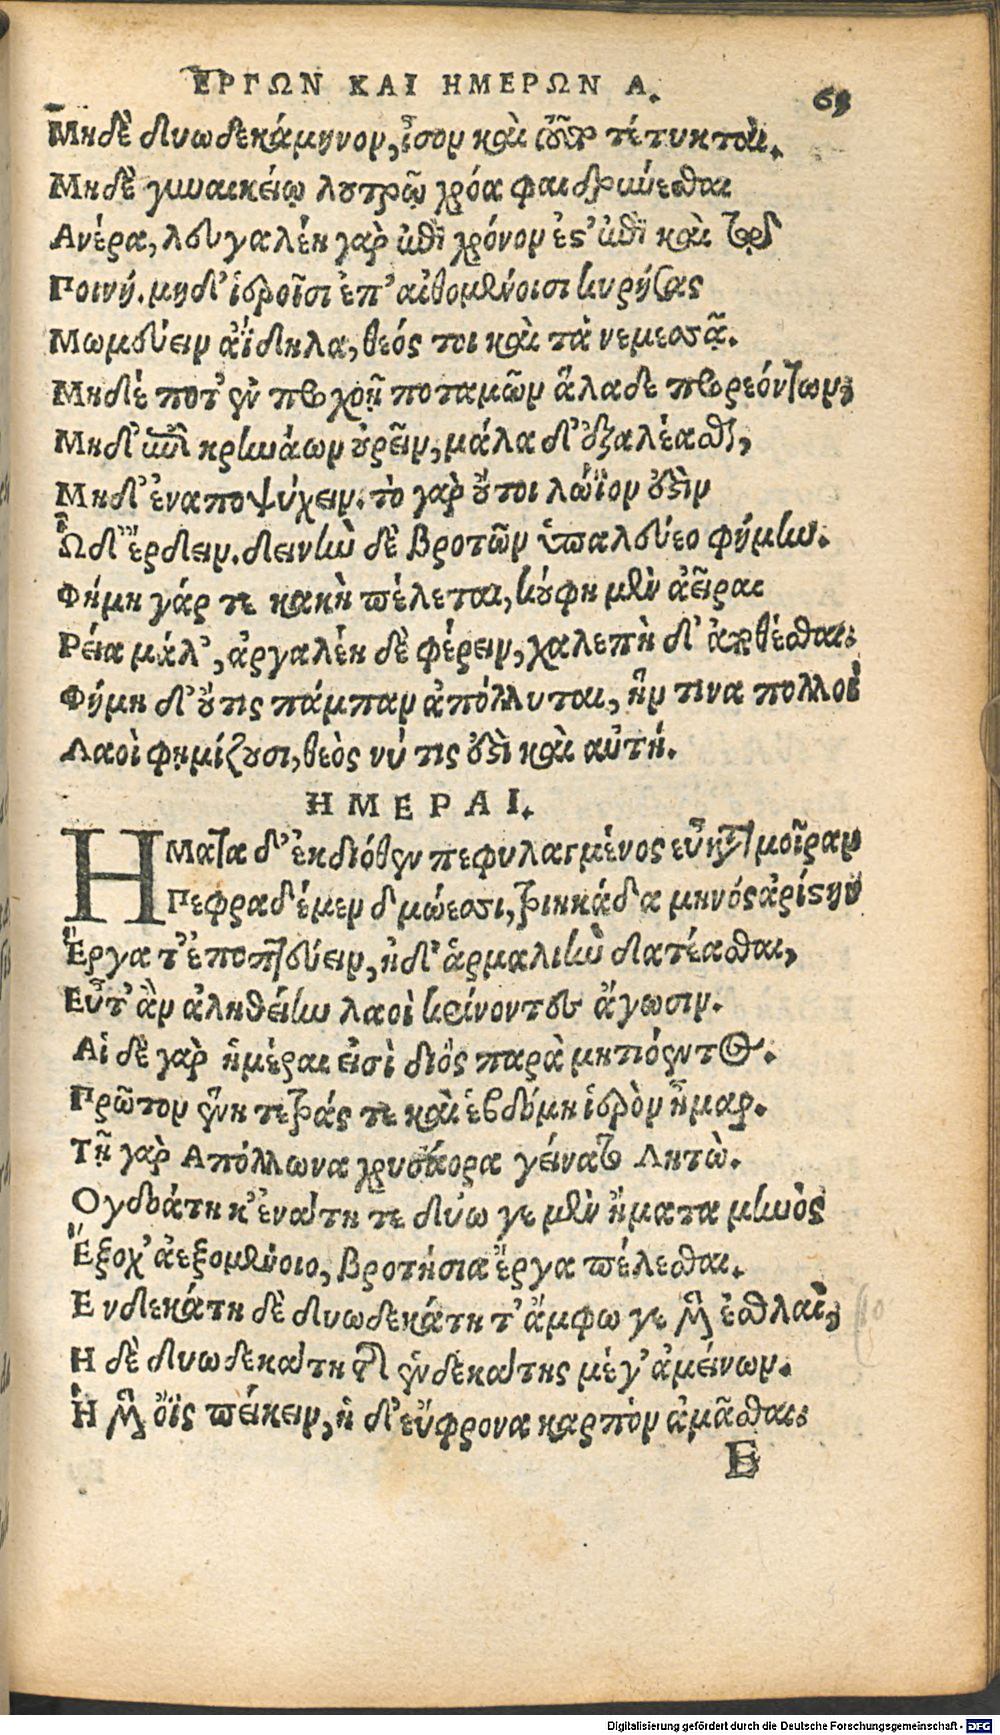 ΕΡΓΩΝ ΚΑΙ ΗΜΕΡΩΝ Α. 65
Μηδὲ δυωδεκάμηνον, ἶσον καὶ τοῦτο τέτυκται.
Μηδὲ γυναικείῳ λουτρῷ χρόα φαιδρύνεσθαι
Ανέρα, λευγαλέη γὰρ ἐπὶ χρόνον ἐστ' ἐπὶ καὶ τῷ
Ποινή. μηδ' ἱεροῖσι ἐπ' αἰθομένοισι κυρήσας
Μωμεύειν ἀΐδηλα, θεός τοι καὶ τὰ νεμεσσᾷ.
Μηδέ ποτ' ἐν προχοῇ ποταμῶν ἅλαδε προρεόντων,
Μηδ' ἐπὶ κρηνάων οὐρεῖν, μάλα δ' ἐξαλέασθαι,
Μηδ' ἐναποψύχειν. τὸ γὰρ οὔτοι λώϊον ἐστὶν
Ὧδ' ἔρδειν. δεινὴν δὲ βροτῶν ὑπαλεύεο φήμην.
Φήμη γάρ τε κακὴ πέλεται, κούφη μὲν ἀεῖραι
Ρεῖα μάλ', ἀργαλέη δὲ φέρειν, χαλεπὴ δ' ἀποθέσθαι.
Φήμη δ' οὔτις πάμπαν ἀπόλλυται, ἥν τινα πολλοὶ
Λαοὶ φημίζουσι, θεὸς νύ τις ἐστὶ καὶ αὐτή.
ΗΜΕΡΑΙ.
ΗΜατα δ' ἐκ διόθεν πεφυλαγμένος εὖ κατὰ μοῖραν
Πεφραδέμεν δμώεσσι, τριηκάδα μηνός ἀρίστην
Ἔργα τ' ἐποπτεύειν, ἠδ' ἁρμαλιὴν δατέασθαι,
Εὖτ' ἂν ἀληθείην λαοὶ κρίνοντες ἄγωσιν.
Αἱ δὲ γὰρ ἡμέραι εἰσὶ διὸς παρὰ μητιόεντος.
Πρῶτον ἔνη τετράς τε καὶ ἑβδόμη ἱερὸν ἦμαρ.
Τῇ γὰρ Απόλλωνα χρυσάορα γείνατο Λητὼ.
Ογδοάτη κ' ἐνάτη τε δύω γε μὲν ἤματα μηνὸς
Ἔξοχ' ἀεξομένοιο, βροτήσια ἔργα πέλεσθαι.
Ενδεκάτη δὲ δυωδεκάτη τ' ἄμφω γε μὲν ἐσθλαὶ,
Η δὲ δυωδεκάτη τῆς ἑνδεκάτης μέγ' ἀμείνων.
Ἠ μὲν ὄϊς πείκειν, ἠ δ' εὔφρονα καρπὸν ἀμᾶσθαι.
E
Digitalisierung gefördert durch die Deutsche Forschungsgemeinschaft - DFG